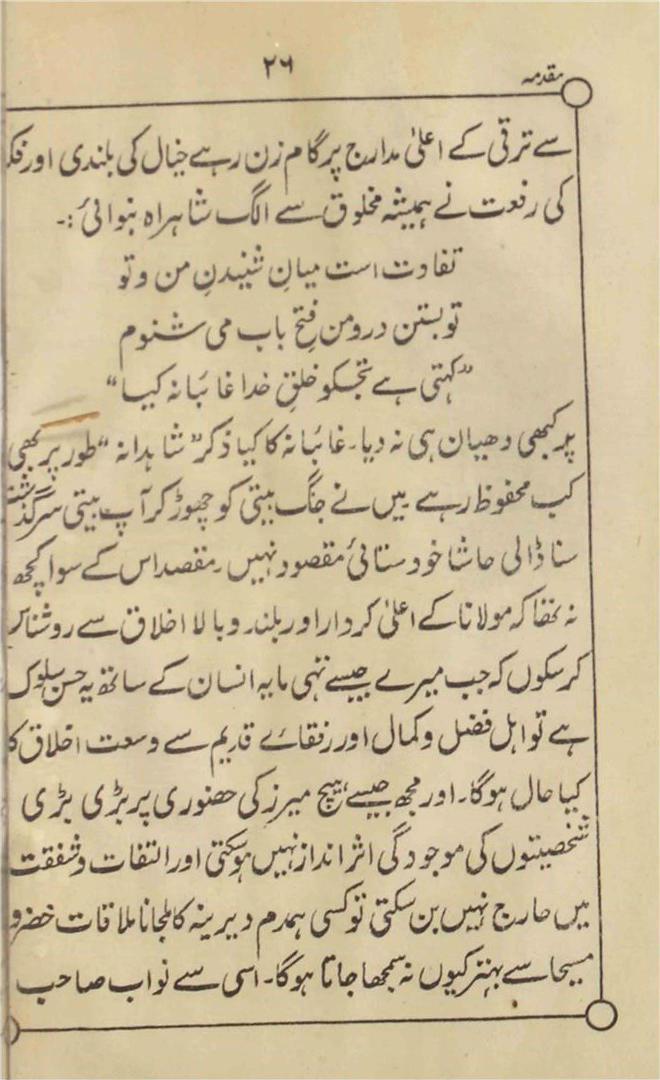 مقدمہ
۲۶
سے ترقی کے اعلیٰ مدارج پر گام زن رہے خیال کی بلندی اور فکر
کی رفعت نے ہمیشہ مخلوق سے الگ شاہراہ بنوائی :۔
تفاوت است میانِ شنیدنِ من و تو
تو بستن در و من فتح باب می شنوم
”کہتی ہے تجھکو خلقِ خدا غائبانہ کیا“
پر کبھی دھیان ہی نہ دیا۔ غائبانہ کا کیا ذکر ”شاہدانہ“ طور پر بھی
کب محفوظ رہے میں نے جگ بیتی کو چھوڑ کر آپ بیتی سرگذشت
سنا ڈالی حاشا خودستائی مقصود نہیں۔ مقصد اس کے سوا کچھ
نہ تھا کہ مولانا کے اعلیٰ کردار اور بلند و بالا اخلاق سے روشناس
کرسکوں کہ جب میرے جیسے تہی مایہ انسان کے ساتھ یہ حسن سلوک
ہے تو اہل فضل و کمال اور رفقائے قدیم سے وسعت اخلاق کا
کیا حال ہوگا۔ اور مجھ جیسے ہیچ میرز کی حضوری پر بڑی بڑی
شخصیتوں کی موجودگی اثر انداز نہیں ہوسکتی اور التفات و شفقت
میں حارج نہیں بن سکتی تو کسی ہمدم دیرینہ کا ملجانا ملاقات خضر و
مسیحا سے بہتر کیوں نہ سمجھا جاتا ہوگا۔ اسی سے نواب صاحب